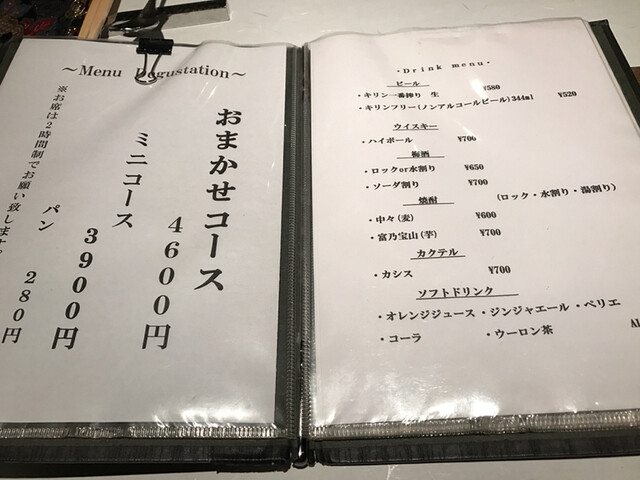 ~Menu Degustation~
おまかせコース
4600円
ミニコース
3900円
パン 280円
※お席は2時間制でお願い致します。
・Drink menu・
ビール
・キリン一番搾り 生 ¥580
・キリンフリー(ノンアルコールビール)344ml ¥520
ウイスキー
・ハイボール ¥700
梅酒
・ロックor水割り ¥650
・ソーダ割り ¥700
焼酎 (ロック・水割り・湯割り)
・中々(麦) ¥600
・富乃宝山(芋) ¥700
カクテル
・カシス ¥700
ソフトドリンク
・オレンジジュース・ジンジャエール・ペリエ
・コーラ ・ウーロン茶